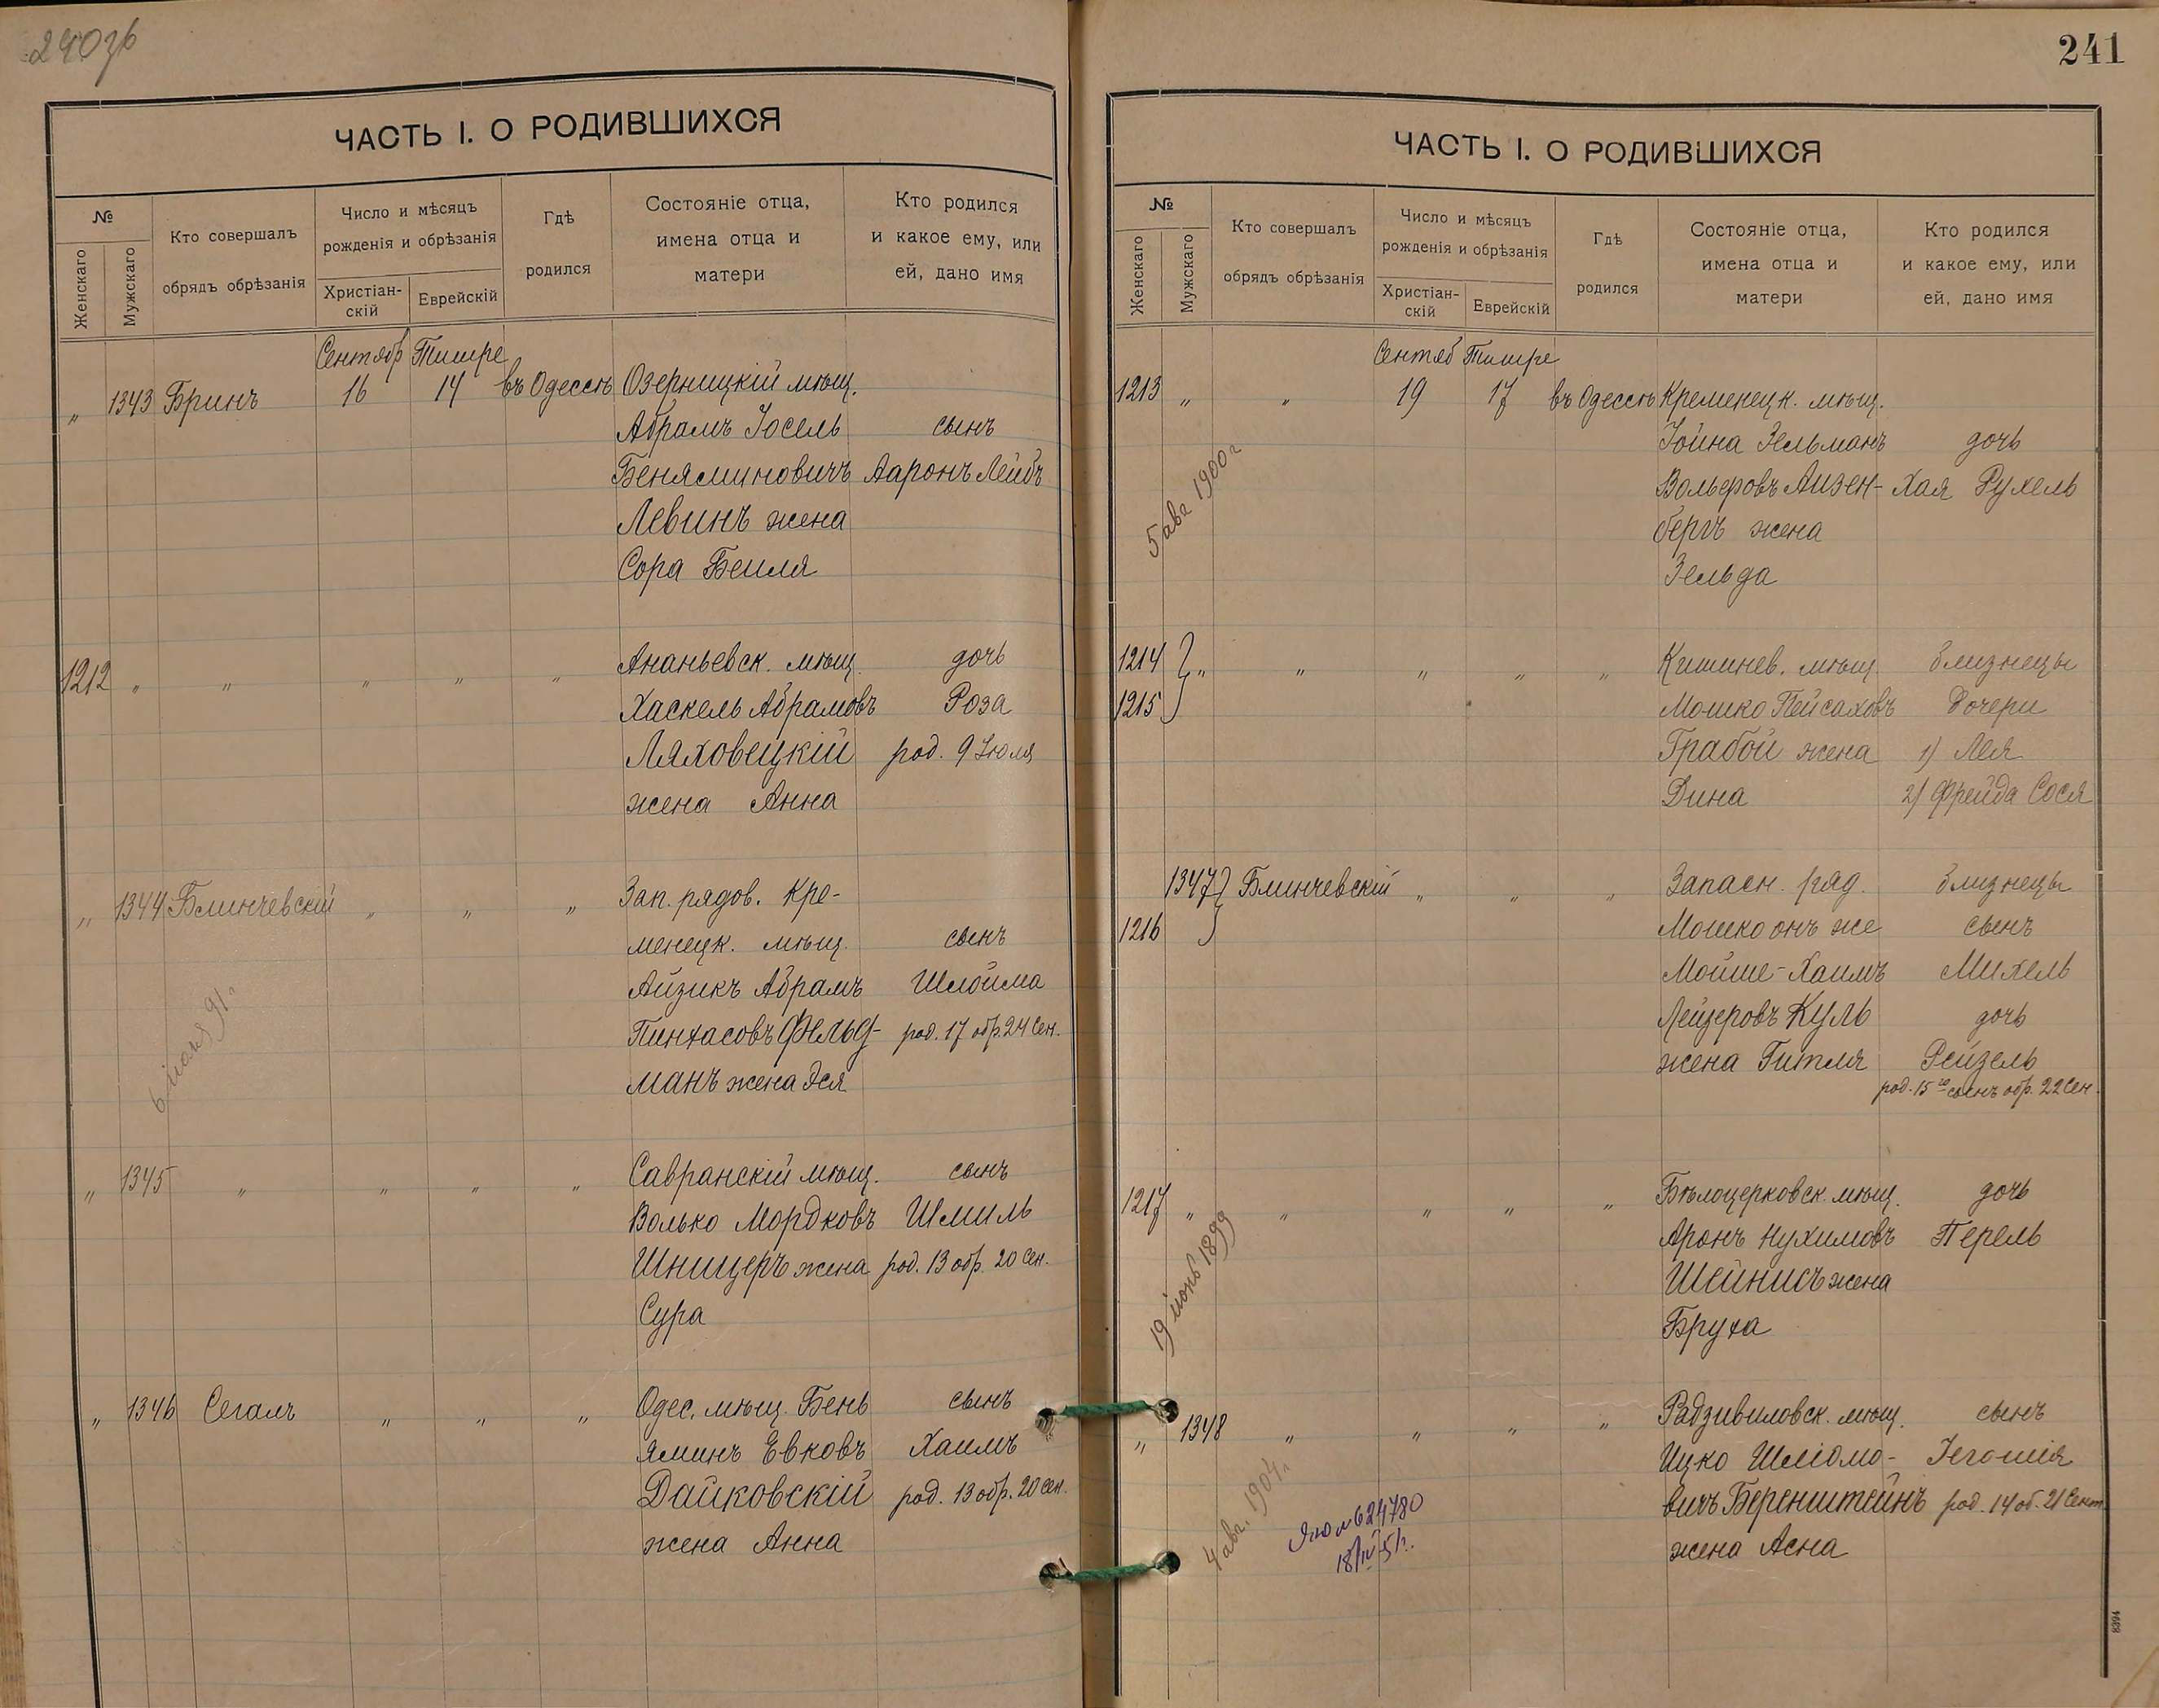 240 зв
ЧАСТЬ I. О РОДИВШИХСЯ
№
Женскаго
Мужскаго
Кто совершалъ
обрядъ обрѣзанія
Число и мѣсяцъ
рожденія и обрѣзанія
Христіан-
скій
Еврейскій
Гдѣ
родился
Состояніе отца,
имена отца и
матери
Кто родился
и какое ему, или
ей, дано имя
Сентябр Тишре
„ 1343 Бринъ 16 14 въ Одессѣ Озерницкій мѣщ.
Абрамъ Іосель сынъ
Беняминовичъ Ааронъ Лейбъ
Левинъ жена
Сора Бейля
1212 „ „ „ „ „ Ананьевск. мѣщ. дочь
Хаскель Абрамовъ Роза
Ляховецкій род. 9 Іюля
жена Анна
„ 1344 Блинчевскій „ „ „ Зап. рядов. Кре-
менецк. мѣщ. сынъ
Айзикъ Абрамъ Шлойма
Пинхасовъ Фельд- род. 17 обр. 24 Сен.
манъ жена Эся
„ 1345 „ „ „ „ Савранскій мѣщ. сынъ
Волько Мордковъ Шмиль
Шницеръ жена род. 13 обр. 20 Сен.
Сура
„ 1346 Сегалъ „ „ „ Одес. мѣщ. Бень сынъ
яминъ Евковъ Хаимъ
Дайковскій род. 13 обр. 20 сен.
жена Анна
241
ЧАСТЬ I. О РОДИВШИХСЯ
№
Женскаго
Мужскаго
Кто совершалъ
обрядъ обрѣзанія
Число и мѣсяцъ
рожденія и обрѣзанія
Христіан-
скій
Еврейскій
Гдѣ
родился
Состояніе отца,
имена отца и
матери
Кто родился
и какое ему, или
ей, дано имя
Сентяб Тишре
1213 „ „ 19 17 въ Одессѣ Кременецк. мѣщ.
Іойна Зельманъ дочь
Вольфовъ Айзен- Хая Рухель
бергъ жена
Зельда
5 авг 1900 г
1214 } „ „ „ „ „ Кишинев. мѣщ. близнецы
1215 Мошко Пейсаховъ Дочери
Грабой жена 1) Лея
Дина 2) Фрейда Сося
1347 } Блинчевскій „ „ „ Запасн. ряд. близнецы
1216 Мошко онъ же сынъ
Мойше-Хаимъ Михель
Лейзеровъ Куль дочь
жена Гитля Рейзель
род. 15го сынъ обр. 22 Сен.
1217 „ „ „ „ „ Бѣлоцерковск. мѣщ. дочь
Аронъ Нухимовъ Перель
Шейнисъ жена
Бруха
19 іюнь 1899
„ 1348 „ „ „ „ Радзивиловск. мѣщ. сынъ
Ицко Шліомо- Іегошія
вичъ Беренштейнъ род. 14 об. 21 Сент
жена Асна
4 авг. 1904 г.
624780
18/IV 51 г.
8394